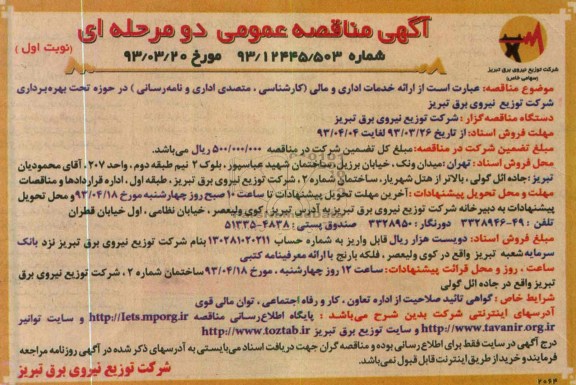 آگهی مناقصه عمومی دو مرحله ای
(نوبت اول)
شماره ۹۳/۱۲۴۴۵/۵۰۳ مورخ ۹۳/۰۳/۲۰
شرکت توزیع نیروی برق تبریز
(سهامی خاص)
موضوع مناقصه: عبارت است از ارائه خدمات اداری و مالی (کارشناسی ، متصدی اداری و نامه‌رسانی ) در حوزه تحت بهره‌برداری
شرکت توزیع نیروی برق تبریز
دستگاه مناقصه‌گزار : شرکت توزیع نیروی برق تبریز
مهلت فروش اسناد: از تاریخ ۹۳/۰۳/۲۶ لغایت ۹۳/۰۴/۰۴
مبلغ تضمین شرکت در مناقصه: مبلغ کل تضمین شرکت در مناقصه ۵۰۰/۰۰۰/۰۰۰ ریال می‌باشد.
محل فروش اسناد : تهران :میدان ونک ، خیابان برزیل، ساختمان شهید عباسپور ، بلوک ۲ نیم طبقه دوم، واحد ۲۰۷ ، آقای محمودیان
تبریز :جاده ائل گولی ، بالاتر از هتل شهریار، ساختمان شماره ۲ ، شرکت توزیع نیروی برق تبریز ، طبقه اول ، اداره قراردادها و مناقصات
مهلت و محل تحویل پیشنهادات : آخرین مهلت تحویل پیشنهادات تا ساعت ۱۰ صبح روز چهارشنبه مورخ ۹۳/۰۴/۱۸ و محل تحویل
پیشنهادات به دبیرخانه شرکت توزیع نیروی برق تبریز به آدرس تبریز ، کوی ولیعصر ، خیابان نظامی ، اول خیابان قطران
تلفن : ۴۹-۳۳۲۸۹۴۶ دورنگار : ۳۳۲۸۹۵۰ صندوق پستی : ۴۸۳۸-۵۱۳۳۵
مبلغ فروش اسناد: دویست هزار ریال قابل واریز به شماره حساب ۰۱۳۰۲۸۱۰۲۰۲۱۱ بنام شرکت توزیع نیروی برق تبریز نزد بانک
سرمایه شعبه تبریز واقع در کوی ولیعصر ، فلکه بارنج با ارائه معرفینامه کتبی
ساعت ، روز و محل قرائت پیشنهادات: ساعت ۱۲ روز چهارشنبه ، مورخ ۹۳/۰۴/۱۸ ساختمان شماره ۲ ، شرکت توزیع نیروی برق
تبریز واقع در جاده ائل گولی
شرایط خاص : گواهی تائید صلاحیت از اداره تعاون ، کار و رفاه اجتماعی ، توان مالی قوی
آدرسهای اینترنتی شرکت بدین شرح می‌باشد : پایگاه اطلاع‌رسانی مناقصه http://Iets.mporg.ir و سایت توانیر
http://www.tavanir.org.ir و سایت توزیع برق تبریز http://www.toztab.ir
درج آگهی در سایت فقط برای اطلاع رسانی بوده و مناقصه گران جهت دریافت اسناد می‌بایستی به آدرسهای ذکر شده در آگهی روزنامه مراجعه
فرمایند و خرید از طریق اینترنت قابل قبول نمی‌باشد.
شرکت توزیع نیروی برق تبریز
۲۰۶۴